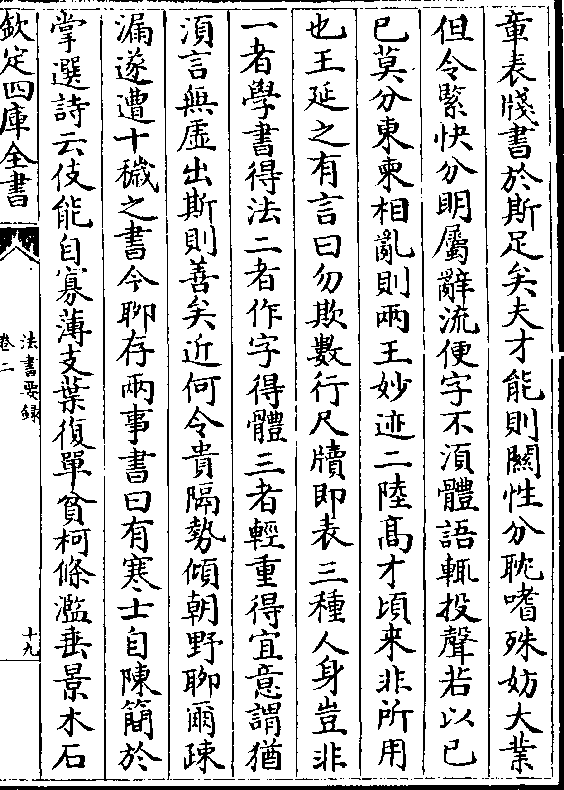 章表牋書於斯足矣夫才能則關性分耽嗜殊妨大業
但令緊快分明屬辭流便字不湏體語輒投聲若以已
已莫分東柬相亂則兩王妙迹二陸髙才頃來非所用
也王延之有言曰勿欺數行尺牘即表三種人身豈非
一者學書得法二者作字得體三者輕重得宜意謂猶
湏言無虛出斯則善矣近何令貴隔勢傾朝野聊爾疎
漏遂遭十穢之書今聊存兩事書曰有寒士自陳簡於
掌選詩云伎能自寡薄支葉復單貧柯條濫垂景木石
欽定四庫全書
法書要録
卷二
十九